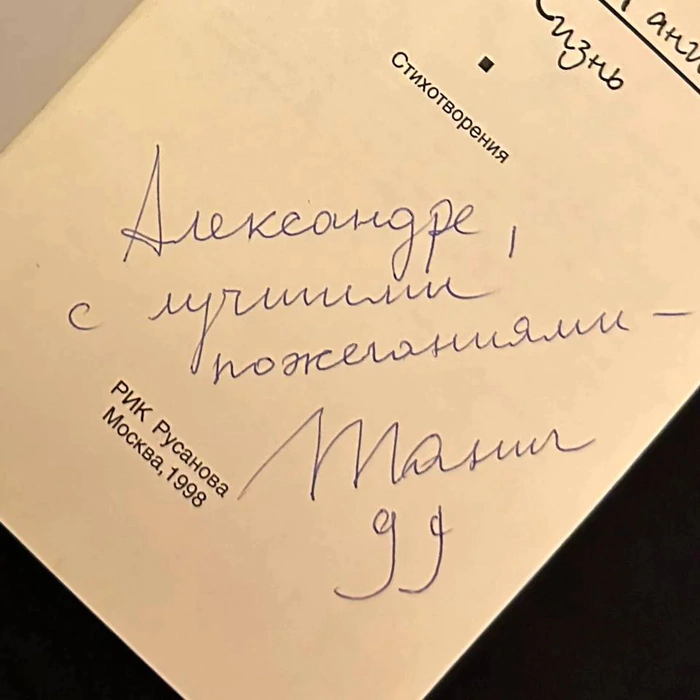 изнь
Стихотворения
Александре,
с лучшими
пожеланиями —
Танич
99
РИК Русанова
Москва, 1998